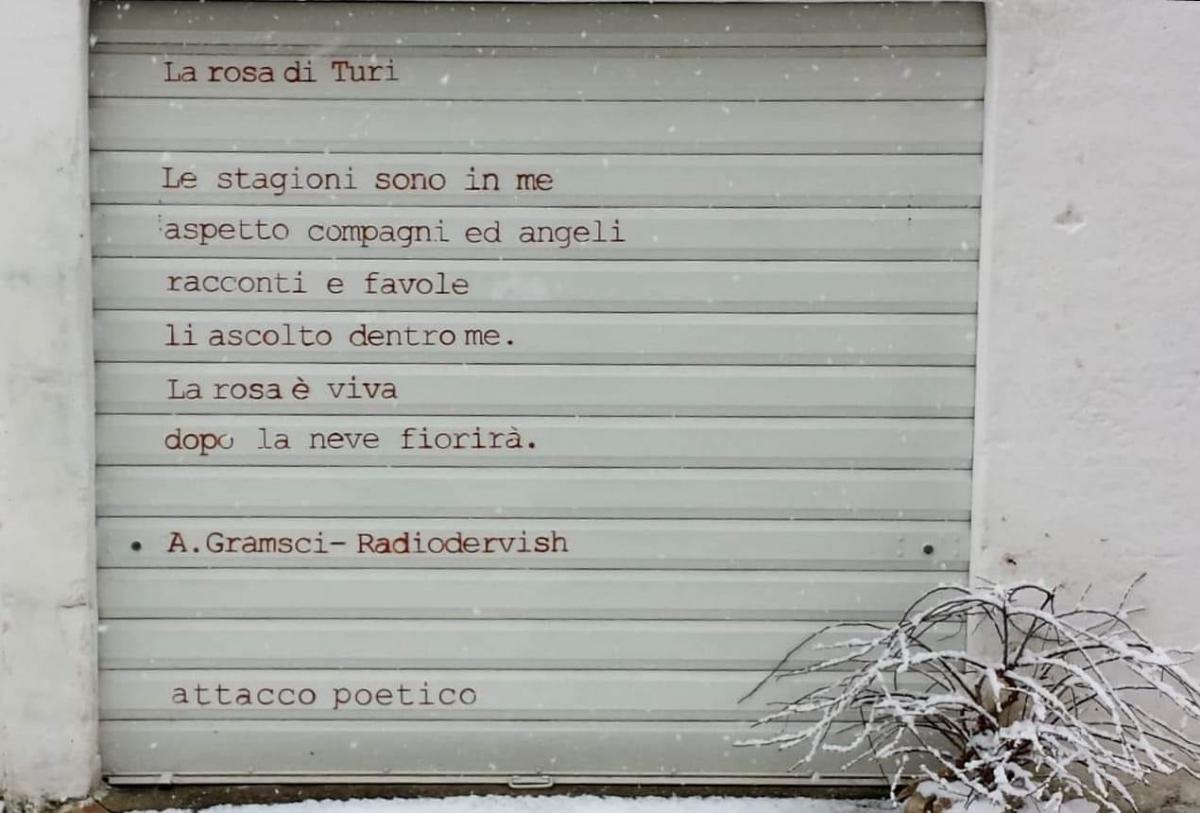 La rosa di Turi
Le stagioni sono in me
aspetto compagni ed angeli
racconti e favole
li ascolto dentro me.
La rosa è viva
dopo la neve fiorirà.
A.Gramsci- Radiodervish
attacco poetico